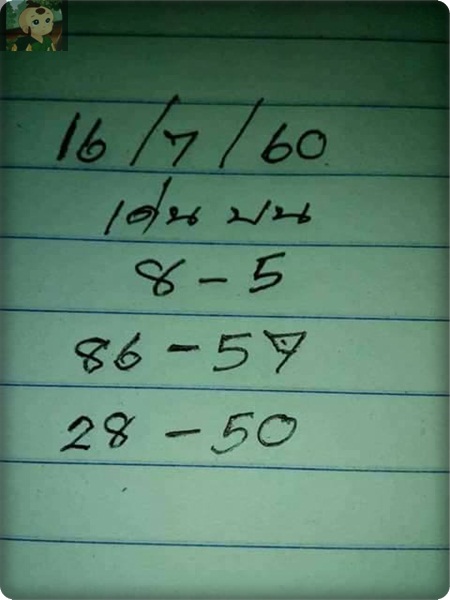 16/7/60
เด่น บน
8-5
86-57
28-50